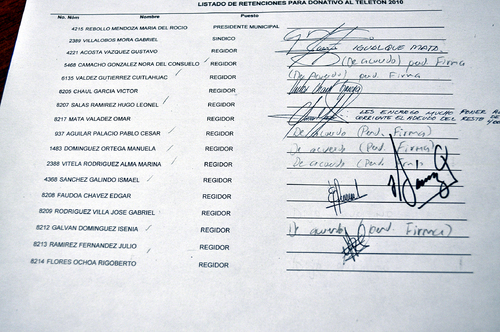 LISTADO DE RETENCIONES PARA DONATIVO AL TELETON 2010
No. Nóm Nombre Puesto
4215 REBOLLO MENDOZA MARIA DEL ROCIO PRESIDENTE MUNICIPAL
2389 VILLALOBOS MORA GABRIEL SINDICO
4221 ACOSTA VAZQUEZ GUSTAVO REGIDOR IGUAL QUE MAYO.
5468 CAMACHO GONZALEZ NORA DEL CONSUELO REGIDOR (De acuerdo) pend. Firma
6135 VALDEZ GUTIERREZ CUITLAHUAC REGIDOR (De Acuerdo) pend. Firma
8205 CHAUL GARCIA VICTOR REGIDOR
8207 SALAS RAMIREZ HUGO LEONEL REGIDOR
8217 MATA VALADEZ OMAR REGIDOR LES ENCARGO MUCHO PONER AL
CORRIENTE EL ADEUDO DEL RESTO DE
937 AGUILAR PALACIO PABLO CESAR REGIDOR De acuerdo (Pend. Firma)
1483 DOMINGUEZ ORTEGA MANUELA REGIDOR De acuerdo (Pend. Firma)
2388 VITELA RODRIGUEZ ALMA MARINA REGIDOR De acuerdo (Pend.
4368 SANCHEZ GALINDO ISMAEL REGIDOR
8206 FAUDOA CHAVEZ EDGAR REGIDOR
8209 RODRIGUEZ VILLA JOSE GABRIEL REGIDOR
8212 GALVAN DOMINGUEZ ISENIA REGIDOR De acuerdo (pend. Firma)
8213 RAMIREZ FERNANDEZ JULIO REGIDOR
8214 FLORES OCHOA RIGOBERTO REGIDOR